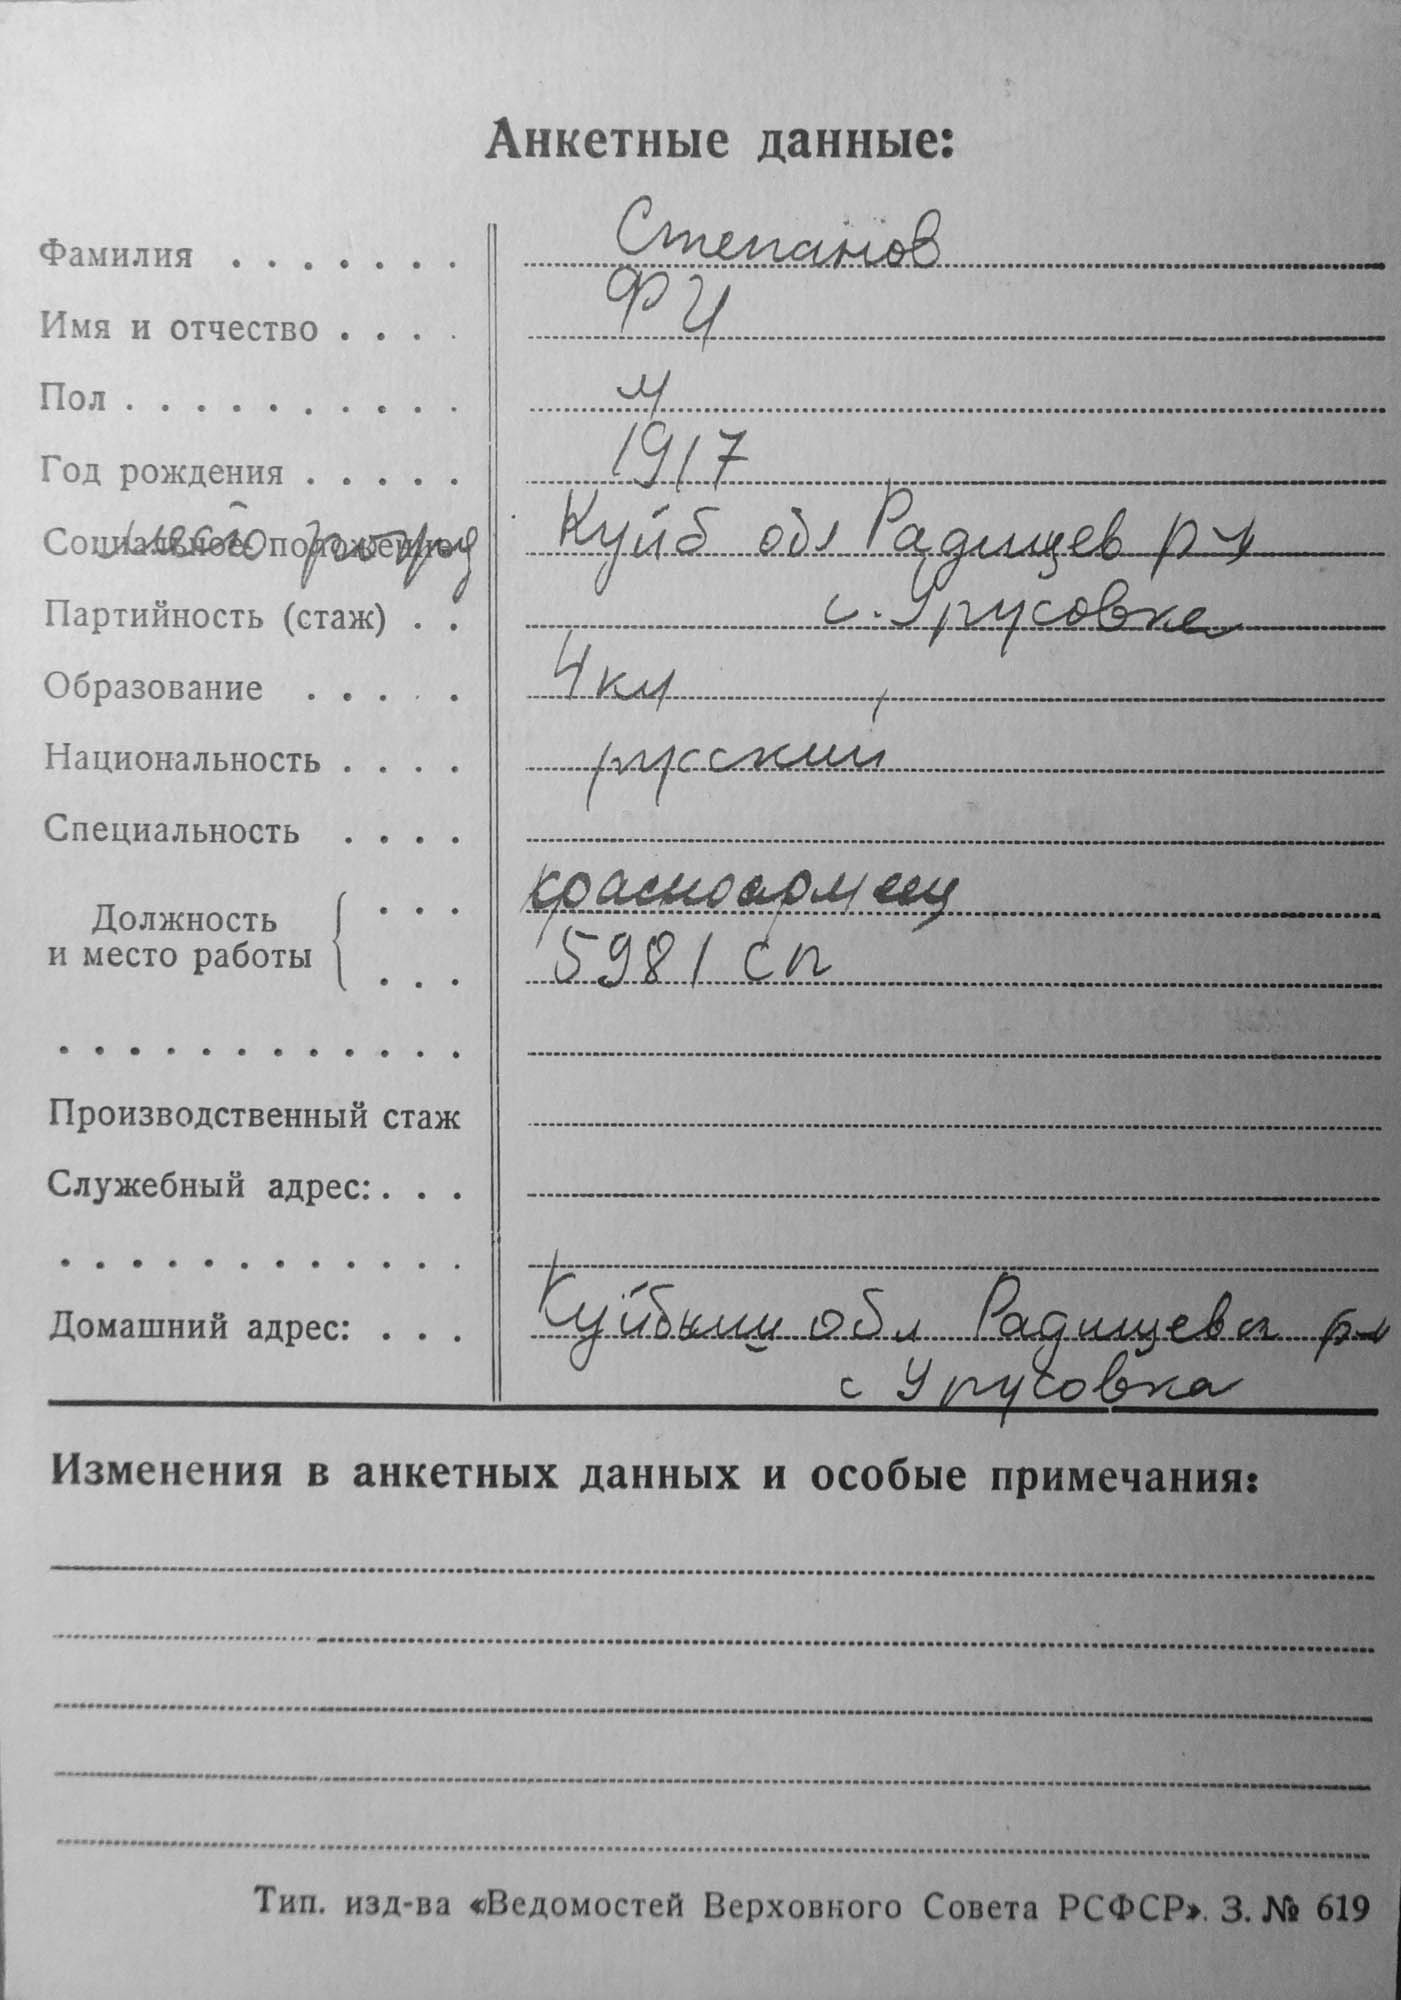 Анкетные данные:
Фамилия . . . . . . . Степанов
Имя и отчество . . . . Ф И
Пол . . . . . . . . . . м
Год рождения . . . . . 1917
Социальное положение место рожд Куйб обл Радищев р-н
Партийность (стаж) . . с. Урусовка
Образование . . . . . 4 кл
Национальность . . . . русский
Специальность . . . .
Должность . . . красноармеец
и место работы . . . 5981 сп
. . . . . . . . . . . .
Производственный стаж
Служебный адрес: . . .
. . . . . . . . . . . .
Домашний адрес: . . . Куйбыш обл Радищева р-н
с Урусовка
Изменения в анкетных данных и особые примечания:
Тип. изд-ва «Ведомостей Верховного Совета РСФСР». З. № 619